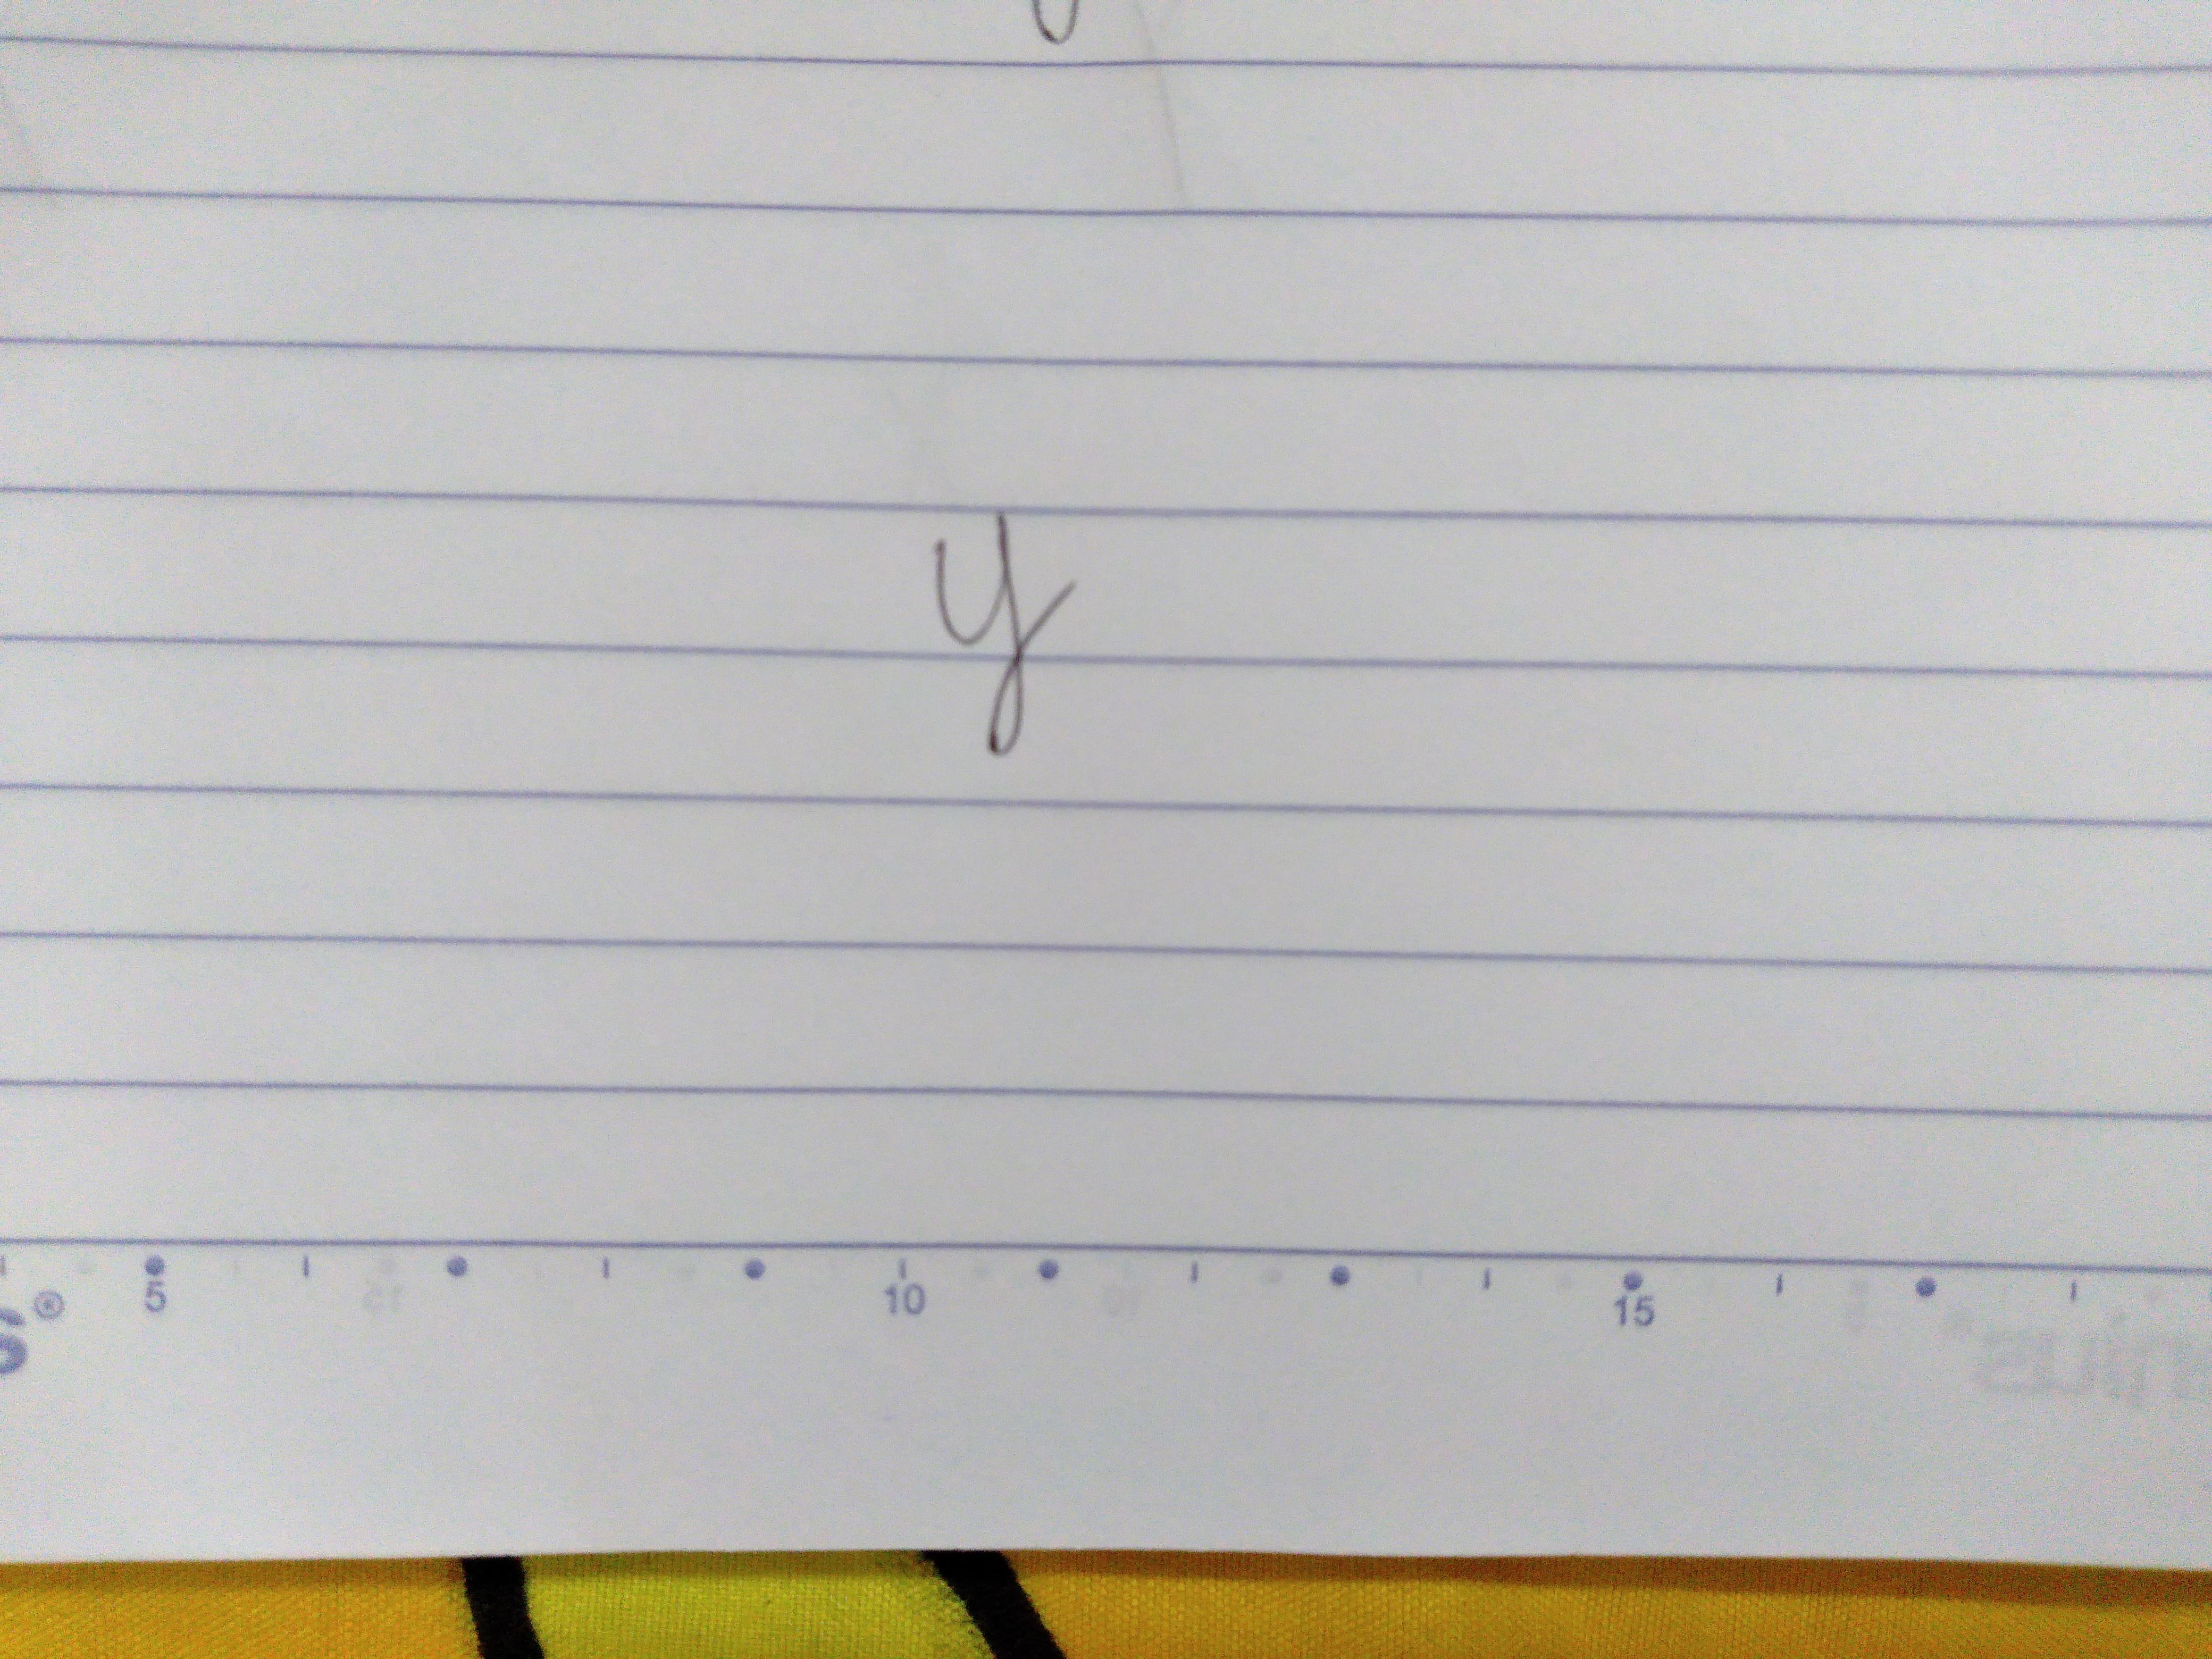 y
5 10 15